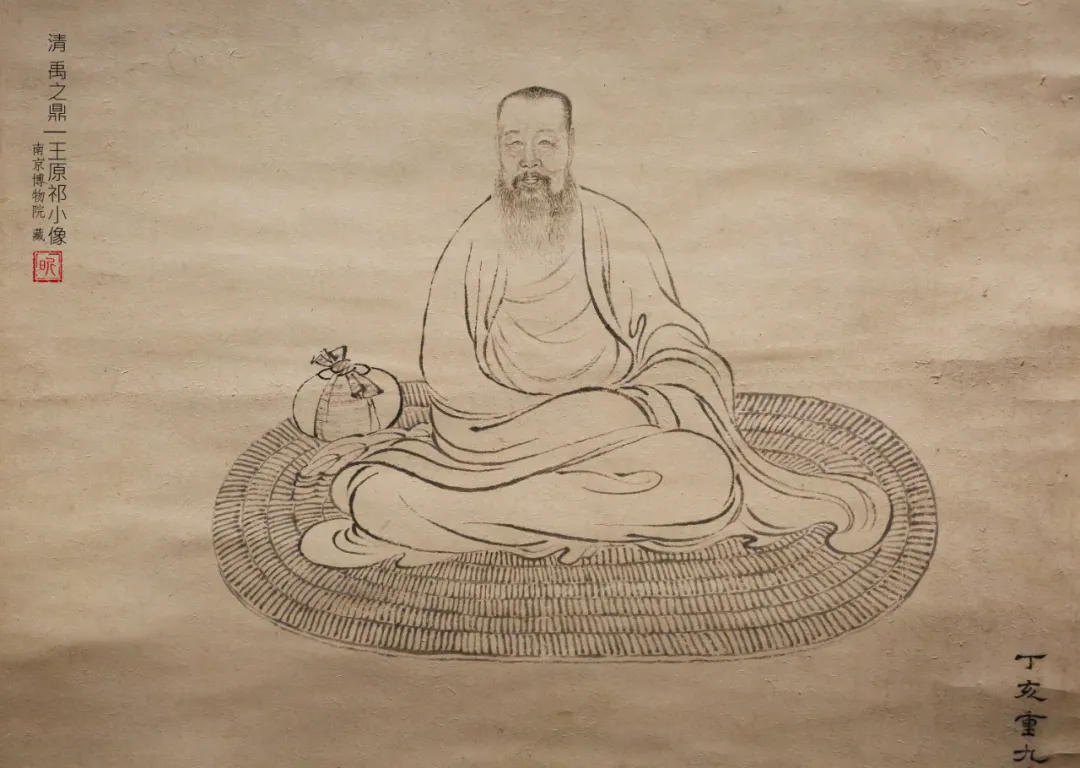 清 禹之鼎|王原祁小像
南京博物院 藏
昵
丁亥重九